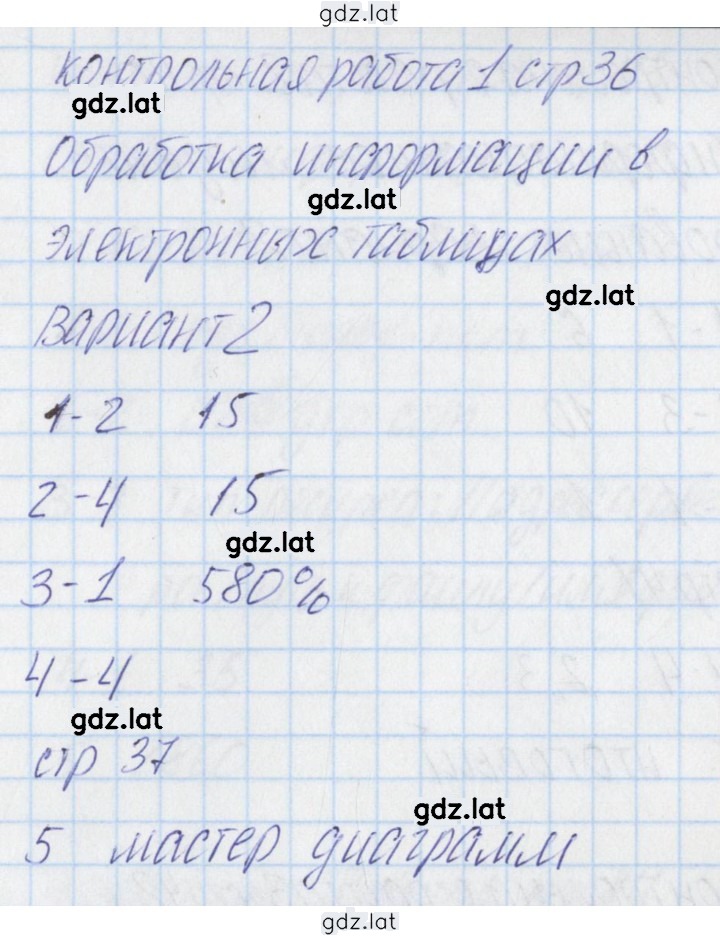 gdz.lat
контрольная работа 1 стр 36
gdz.lat
Обработка информации в
gdz.lat
электронных таблицах
gdz.lat
Вариант 2
1-2 15
2-4 15
gdz.lat
3-1 580%
4-4
gdz.lat
стр 37
gdz.lat
5 мастер диаграмм
gdz.lat